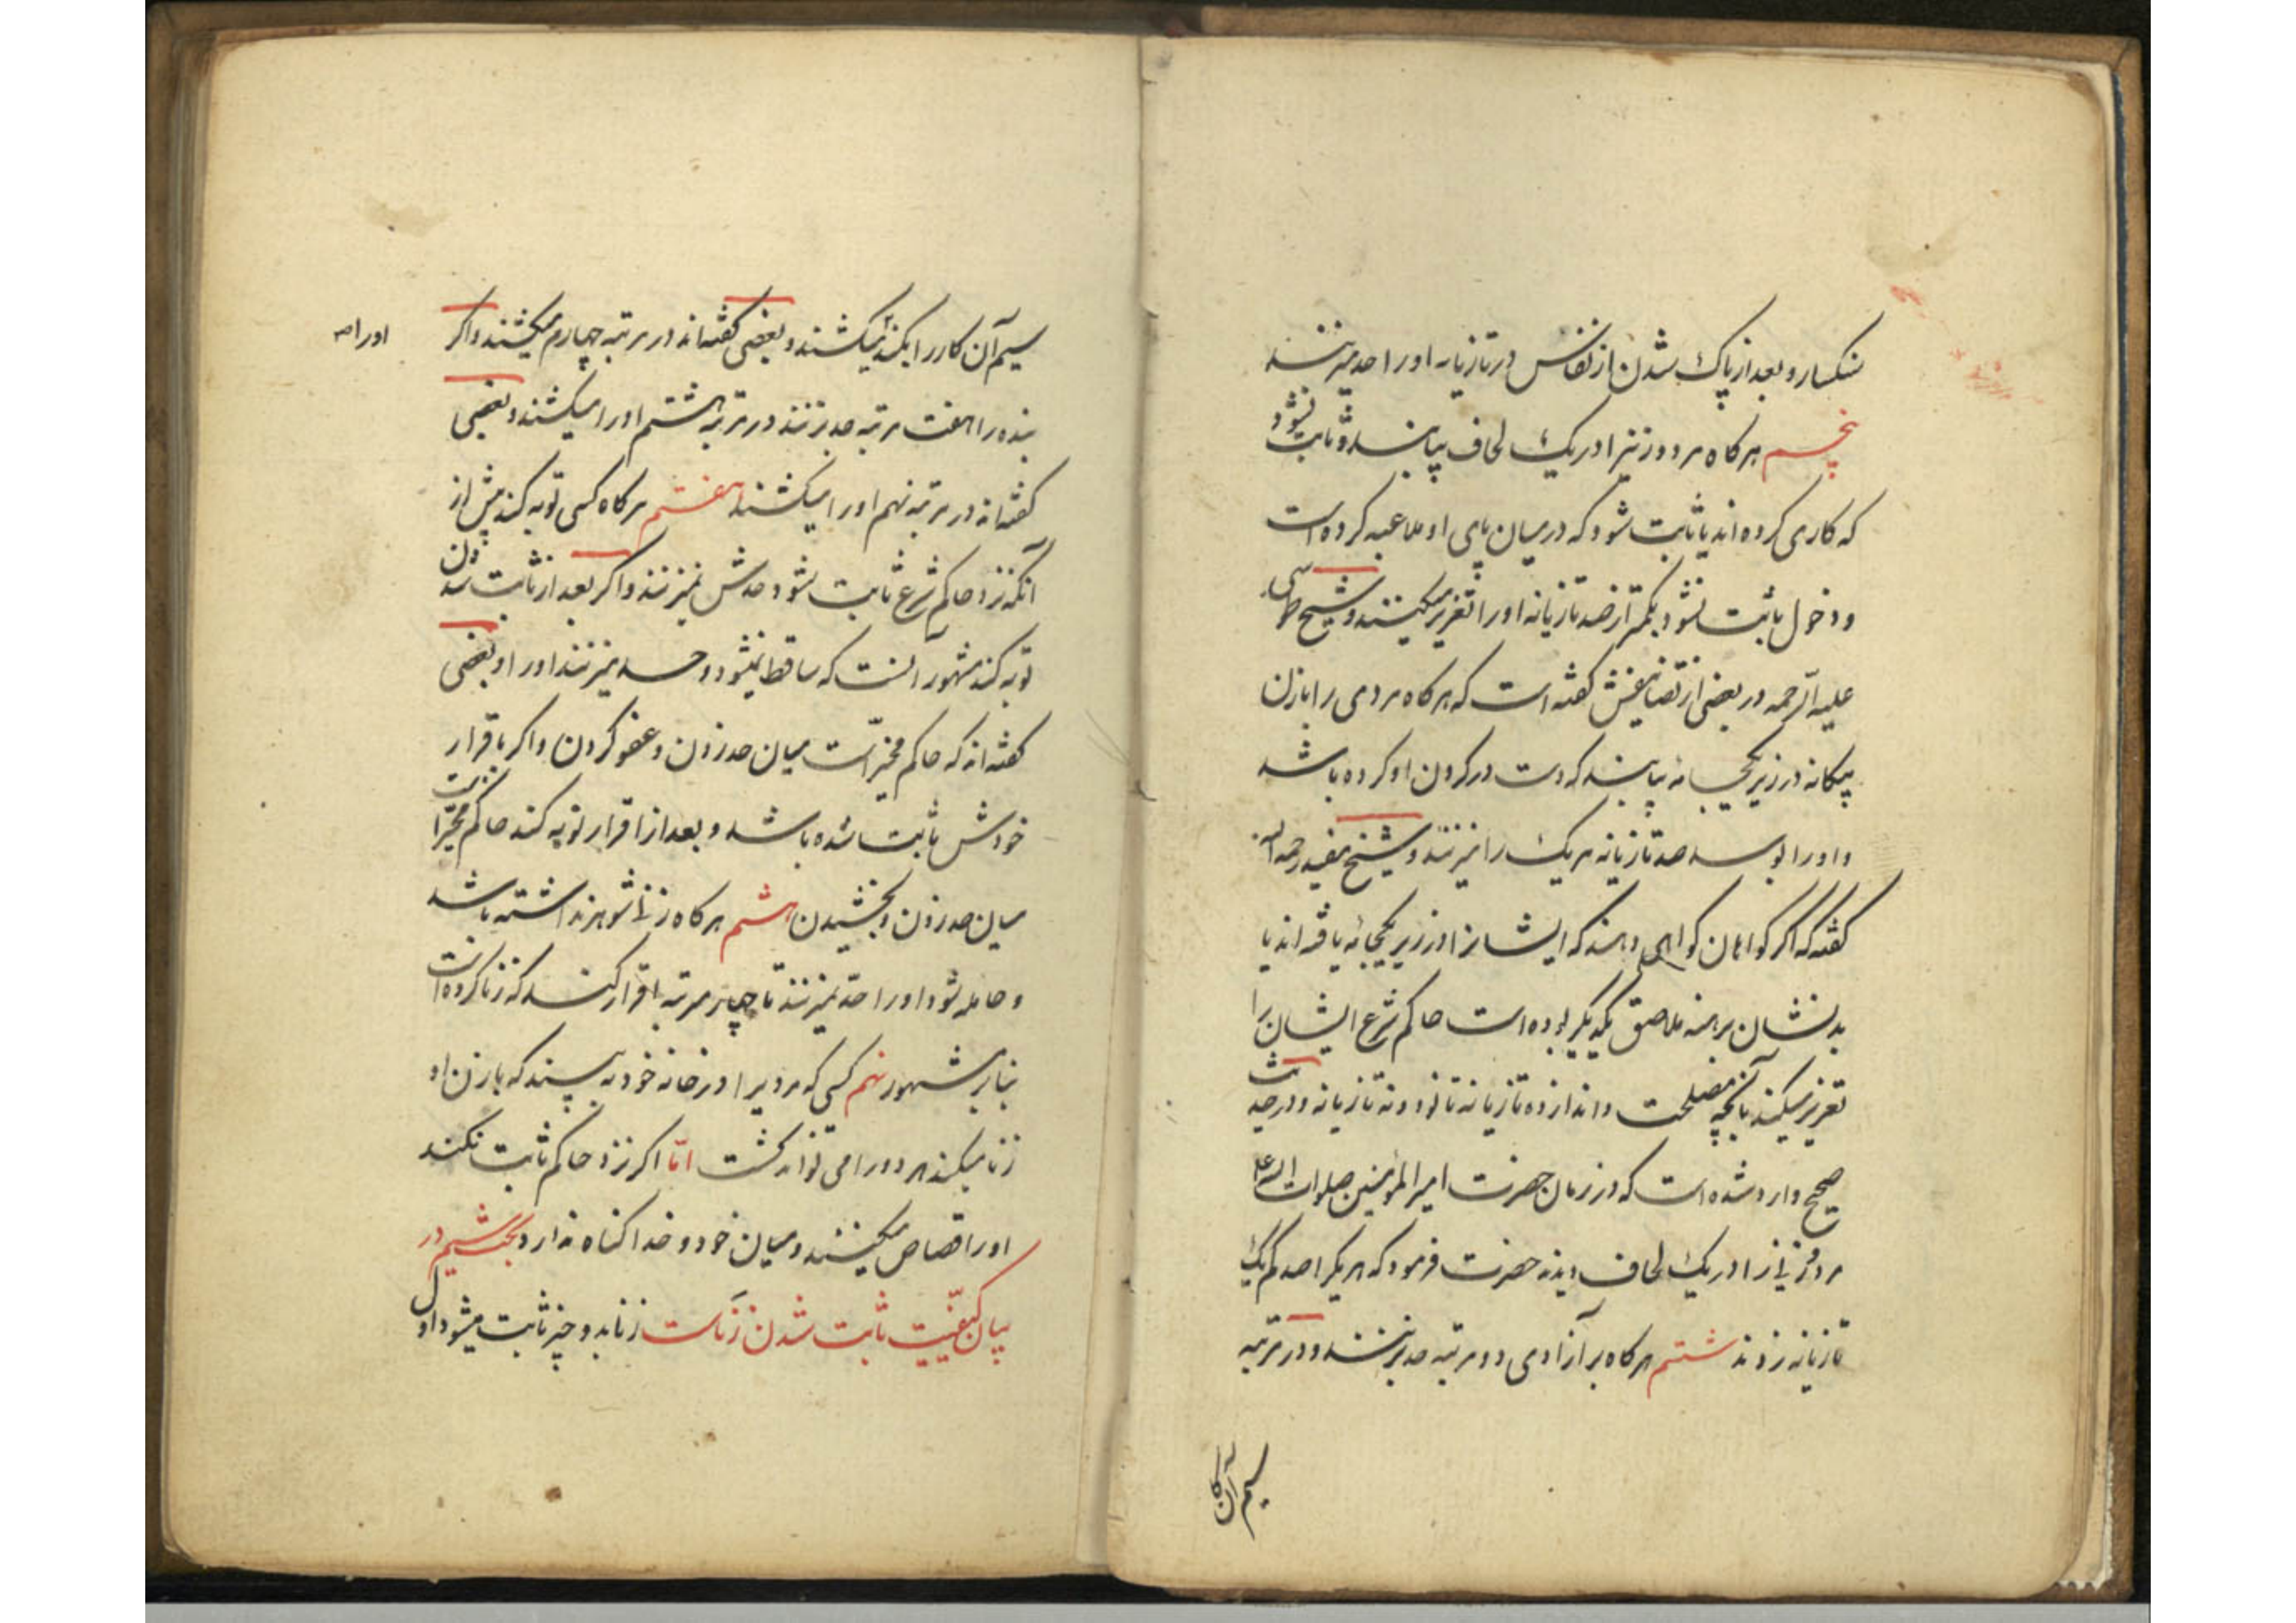 سنکسار و بعد از پاک شدن از نفاس در تازیانه او را حد میزنند
پنجم هرکاه مرد و زنیرا در یک لحاف بیابند و ثابت نشود
که کاری کرده اند یا ثابت شود که در میان پای او ملاعبه کرده است
و دخول ثابت نشود بکمتر از صد تازیانه او را تعزیر میکنند و شیخ طوسی
علیه الرحمه در بعضی از تصانیفش کفته است که هرکاه مردی را با زن
بیکانه در زیر یکجامه بیابند که دست در کردن او کرده باشد
و او را بوسد صد تازیانه هر یک را میزنند و شیخ مفید رحمه الله
کفته که اکر کواهان کواهی دهند که ایشانرا در زیر یکجامه یافته اند یا
بدنشان برهنه ملاصق یکدیکر بوده است حاکم شرع ایشان را
تعزیر میکند بآنچه مصلحت داند از ده تازیانه تا نود و نه تازیانه و در حدیث
صحیح وارد شده است که در زمان حضرت امیر المؤمنین صلوات الله علیه
مرد و زنیرا در یک لحاف دیدند حضرت فرمود که هر یکرا صد کم یک
تازیانه زدند ششم هرکاه بر آزادی دو مرتبه حد بزنند و در مرتبه
سیم آن کار
سیم آن کار را بکند میکشند و بعضی کفته اند در مرتبه چهارم میکشند و اکر
او را صه
بنده را هفت مرتبه حد بزنند در مرتبه هشتم او را میکشند و بعضی
کفته اند در مرتبه نهم او را میکشند هفتم هرکاه کسی توبه کند پیش از
آنکه نزد حاکم شرع ثابت شود حدش نمیزنند و اکر بعد از ثابت شدن
توبه کند مشهور آنست که ساقط نمیشود و حد میزنند او را و بعضی
کفته اند که حاکم مخیر است میان حد زدن و عفو کردن و اکر باقرار
خودش ثابت شده باشد و بعد از اقرار توبه کند حاکم مخیر است
میان حد زدن و بخشیدن هشتم هرکاه زنی شوهر نداشته باشد
و حامله شود او را حد نمیزنند تا چهار مرتبه اقرار کند که زنا کرده است
بنا بر مشهور نهم کسی که مردیرا در خانه خود به بیند که با زن او
زنا میکند هر دو را می تواند کشت اما اکر نزد حاکم ثابت نکند
او را قصاص میکنند و میان خود و خدا کناه ندارد بحث سیم در
بیان کیفیت ثابت شدن زناست زنا بدو چیز ثابت میشود اول